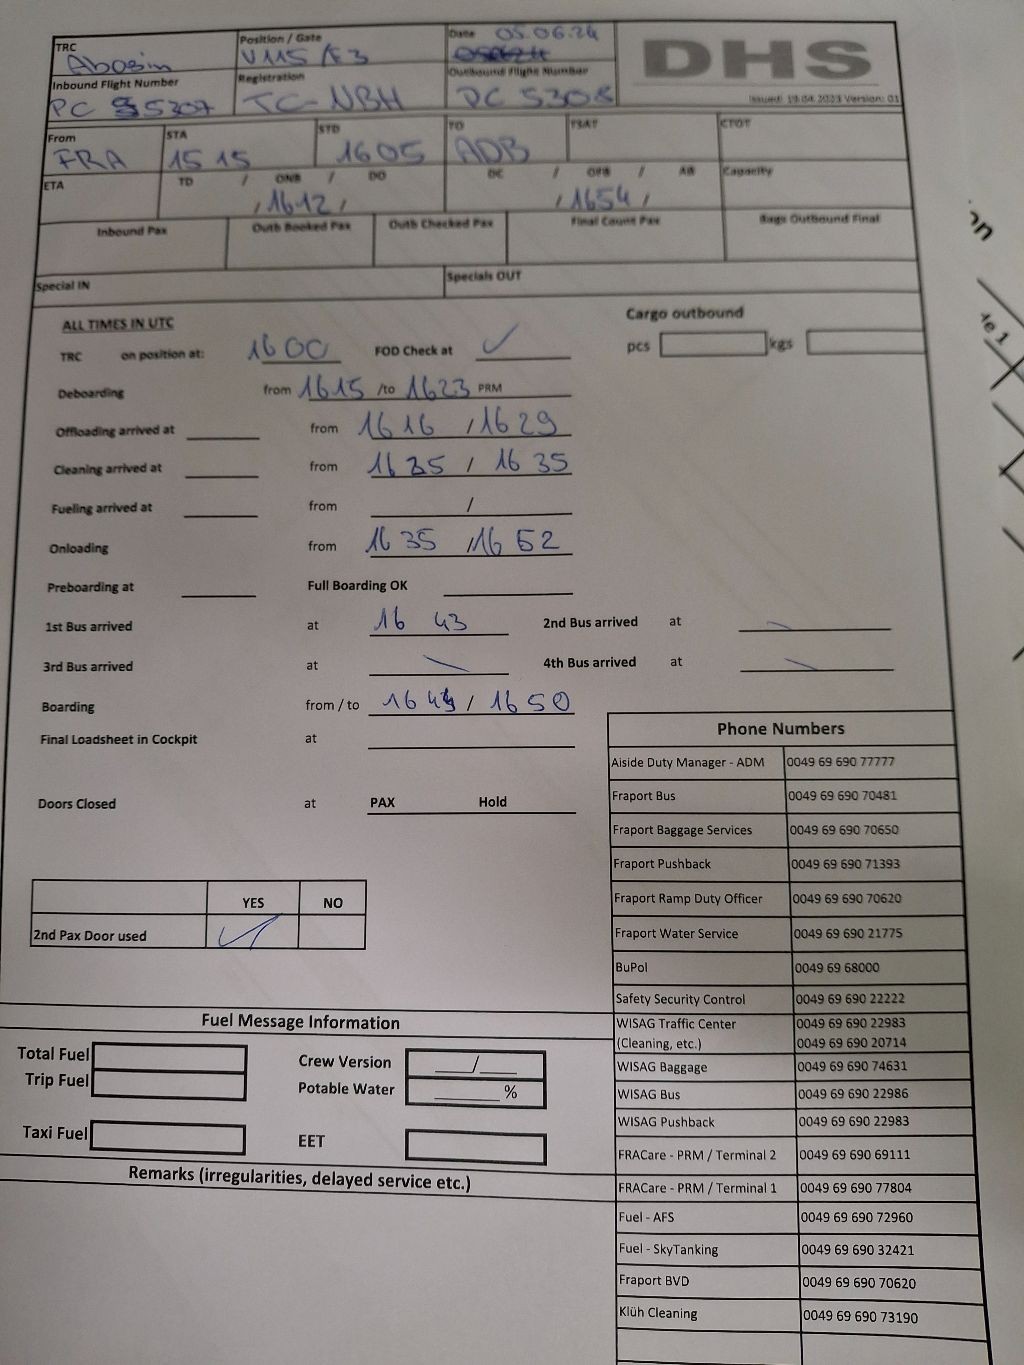 TRC Position / Gate Date 05.06.24 DHS
Abosin V115 / E3
Inbound Flight Number Registration Outbound Flight Number
PC 5307 TC-NBH PC 5308 Issued: 19.04.2023 Version: 01
From STA STD TO TSAT CTOT
FRA 1515 1605 ADB
ETA TD / ONB / DO DC / OFB / AB Capacity
/ 1612 / / 1654 /
Inbound Pax Outb Booked Pax Outb Checked Pax Final Count Pax Bags Outbound Final
Special IN Specials OUT
ALL TIMES IN UTC Cargo outbound
TRC on position at: 1600 FOD Check at ✓ pcs kgs
Deboarding from 1615 /to 1623 PRM
Offloading arrived at from 1616 / 1629
Cleaning arrived at from 1635 / 1635
Fueling arrived at from /
Onloading from 1635 / 1652
Preboarding at Full Boarding OK
1st Bus arrived at 16 43 2nd Bus arrived at
3rd Bus arrived at 4th Bus arrived at
Boarding from / to 1644 / 1650
Final Loadsheet in Cockpit at
Doors Closed at PAX Hold
YES NO
2nd Pax Door used ✓
Fuel Message Information
Total Fuel Crew Version /
Trip Fuel Potable Water %
Taxi Fuel EET
Remarks (irregularities, delayed service etc.)
Phone Numbers
Aiside Duty Manager - ADM 0049 69 690 77777
Fraport Bus 0049 69 690 70481
Fraport Baggage Services 0049 69 690 70650
Fraport Pushback 0049 69 690 71393
Fraport Ramp Duty Officer 0049 69 690 70620
Fraport Water Service 0049 69 690 21775
BuPol 0049 69 68000
Safety Security Control 0049 69 690 22222
WISAG Traffic Center 0049 69 690 22983
(Cleaning, etc.) 0049 69 690 20714
WISAG Baggage 0049 69 690 74631
WISAG Bus 0049 69 690 22986
WISAG Pushback 0049 69 690 22983
FRACare - PRM / Terminal 2 0049 69 690 69111
FRACare - PRM / Terminal 1 0049 69 690 77804
Fuel - AFS 0049 69 690 72960
Fuel - SkyTanking 0049 69 690 32421
Fraport BVD 0049 69 690 70620
Klüh Cleaning 0049 69 690 73190